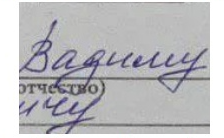 Вадиму
отчество)
ичу